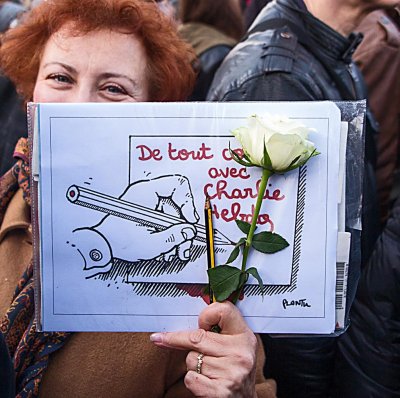 De tout
avec
Charlie
Hebdo
PLANTU